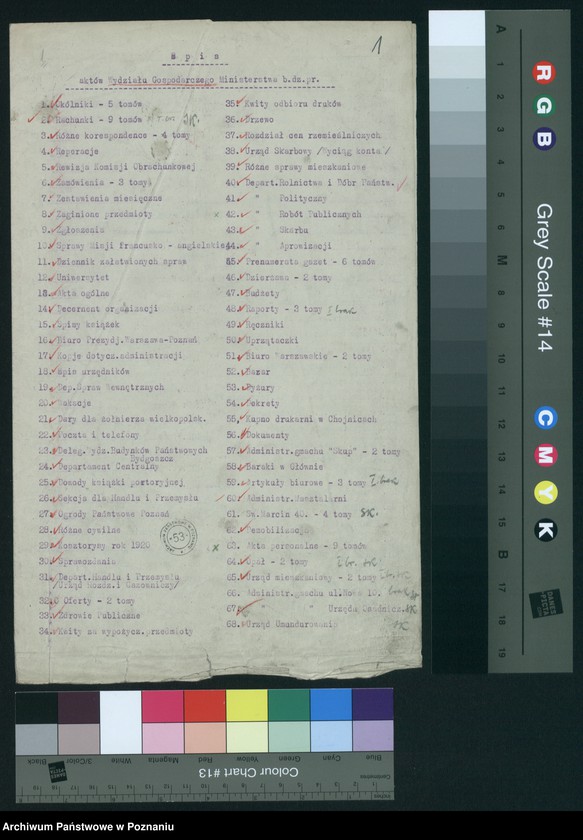 1
S p i s
aktów Wydziału Gospodarczego Ministerstwa b.dz.pr.
1. Okólniki - 5 tomów
2. Rachunki - 9 tomów
3. Różne korespondence - 4 tomy
4. Separacje
5. Rewizja Komisji Obrachunkowej
6. Zamówienia - 3 tomy
7. Zestawienia miesięczne
8. Zaginione przedmioty
9. Zgłoszenia
10. Sprawy Misji francusko - angielskiej
11. Dziennik załatwionych spraw
12. Uniwersytet
13. Akta ogólne
14. Decernent organizacji
15. Spisy książek
16. Biuro Prezydj.Warszawa-Poznań
17. Kopje dotycz.administracji
18. Spis urzędników
19. Dep.Spraw Wewnętrznych
20. Wakacje
21. Dary dla żołnierza wielkopolsk.
22. Poczta i telefony
23. Deleg.Wydz.Budynków Państwowych
Bydgoszcz
24. Departament Centralny
25. Dowody książki portoryjnej
26. Sekcja dla Handlu i Przemysłu
27. Ogrody Państwowe Poznań
28. Różne cywilne
29. Kosztorysy rok 1920
30. Sprawozdania
31. Depart.Handlu i Przemysłu
32. Oferty - 2 tomy
33. Zdrowie Publiczne
34. Kwity na wypożycz.przedmioty
35. Kwity odbioru druków
36. Drzewo
37. Rozdział cen rzemieślniczych
38. Urząd Skarbowy /Wyciąg konta/
39. Różne sprawy mieszkaniowe
40. Depart.Rolnictwa i Dóbr Państw.
41. " Polityczny
42. " Robót Publicznych
43. " Skarbu
44. " Aprowizacji
45. Prenumerata gazet - 6 tomów
46. Dzierżawa - 2 tomy
47. Budżety
48. Raporty - 3 tomy I brak
49. Ręczniki
50. Sprzątaczki
51. Biuro Warszawskie - 2 tomy
52. Bazar
53. Dyżury
54. Dekrety
55. Kupno drukarni w Chojnicach
56. Dokumenty
57. Administr.gmachu "Skup" - 2 tomy
58. Baraki w Głównie
59. Artykuły biurowe - 3 tomy I brak
60. Administr.
61. Św.Marcin 40. - 4 tomy SK.
62. Demobilizacja
63. Akta personalne - 9 tomów
64. Opał - 2 tomy
65. Urząd mieszkaniowy - 2 tomy
66. Administr.gmachu
67. " " Urzędu Osadnicz. SK
68. Urząd Umundurowania SK
53
R
G
B
Grey Scale #14
C
M
Y
K
A 1 2 3 4 5 6 M 8 9 10 11 12 13 14 15 B 17 18 19
DANES PICTA
Colour Chart #13
Blue Cyan Green Yellow Red Magenta White 3/Color Black
Centimetres
Inches
Archiwum Państwowe w Poznaniu